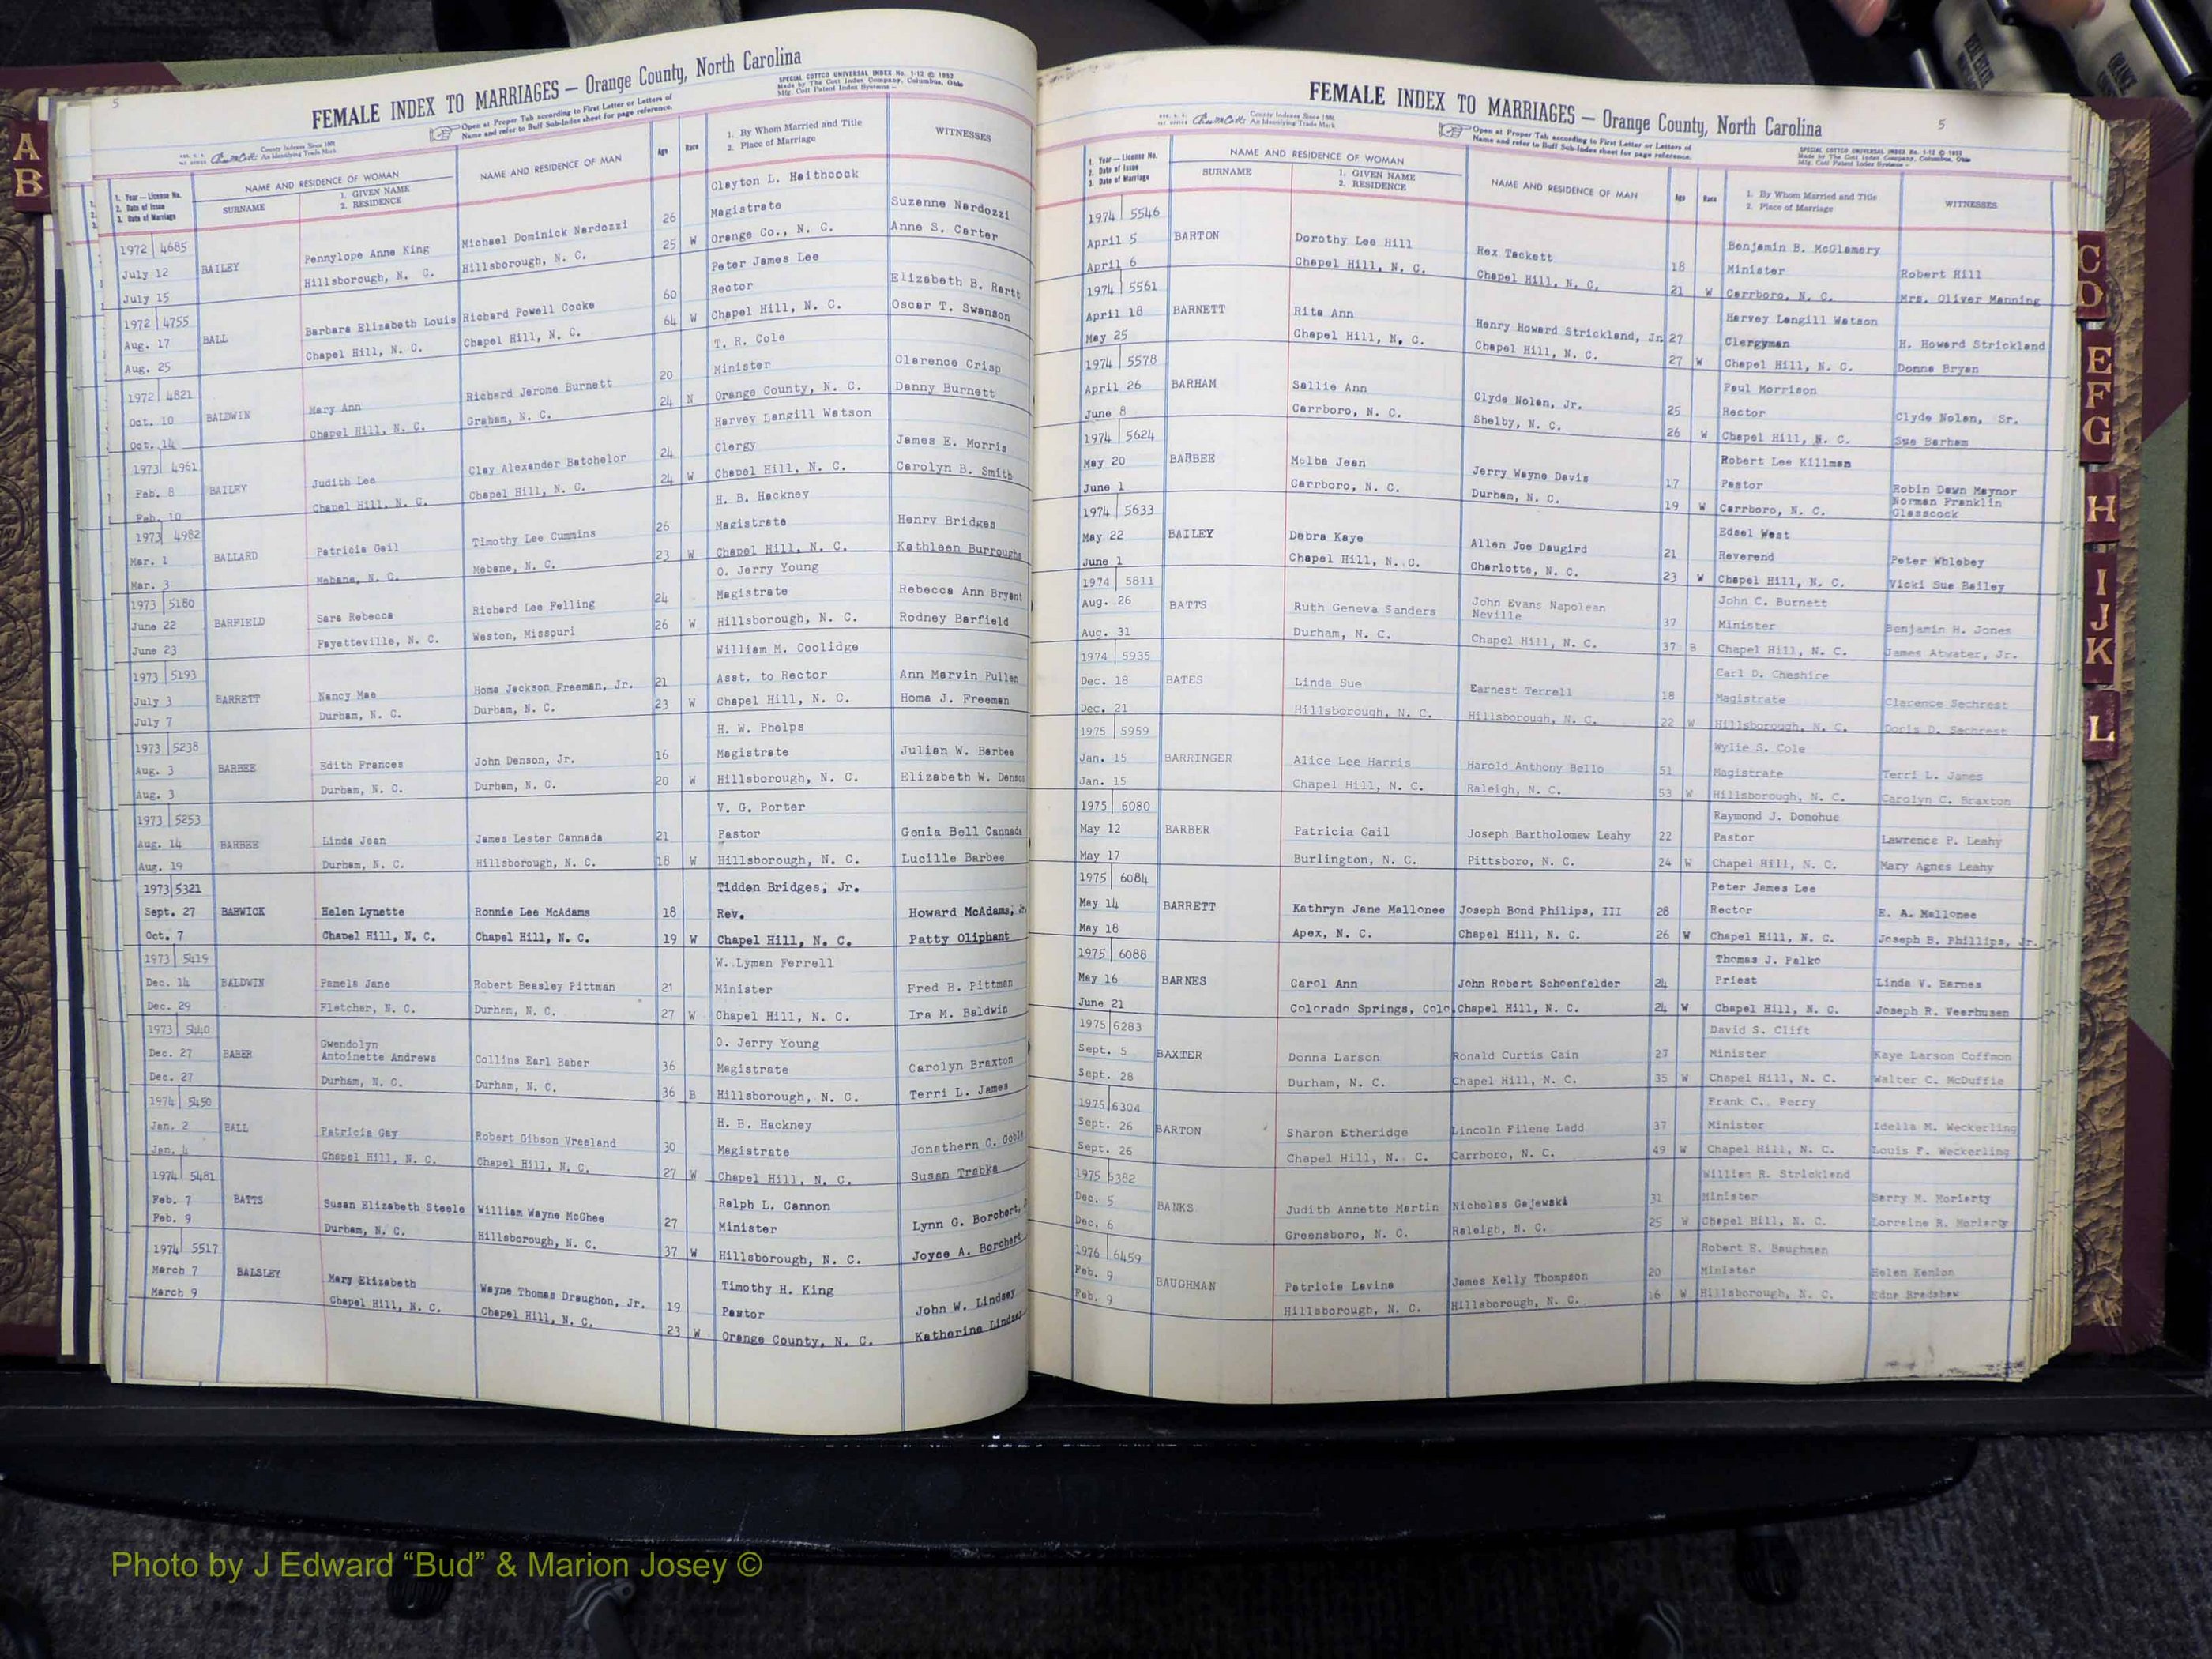 5
FEMALE INDEX TO MARRIAGES — Orange County, North Carolina
SPECIAL COTTCO UNIVERSAL INDEX No. 1-12 © 1952
Made by The Cott Index Company, Columbus, Ohio
Mfg. Cott Patent Index Systems —
Open at Proper Tab according to First Letter or Letters of
Name and refer to Buff Sub-Index sheet for page reference.
County Indexes Since 1888
An Identifying Trade Mark
1. Year — License No.
2. Date of Issue
3. Date of Marriage
NAME AND RESIDENCE OF WOMAN
SURNAME
1. GIVEN NAME
2. RESIDENCE
NAME AND RESIDENCE OF MAN
Age
Race
1. By Whom Married and Title
2. Place of Marriage
WITNESSES
1972 4685 Clayton L. Haithcock
July 12 BAILEY Pennylope Anne King Michael Dominick Nardozzi 26 Magistrate Suzanne Nardozzi
July 15 Hillsborough, N. C. Hillsborough, N. C. 25 W Orange Co., N. C. Anne S. Carter
1972 4755 Peter James Lee
Aug. 17 BALL Barbara Elizabeth Louis Richard Powell Cocke 60 Rector Elizabeth B. Rartt
Aug. 25 Chapel Hill, N. C. Chapel Hill, N. C. 64 W Chapel Hill, N. C. Oscar T. Swanson
1972 4821 T. R. Cole
Oct. 10 BALDWIN Mary Ann Richard Jerome Burnett 20 Minister Clarence Crisp
Oct. 14 Chapel Hill, N. C. Graham, N. C. 24 N Orange County, N. C. Danny Burnett
1973 4961 Harvey Langill Watson
Feb. 8 BAILEY Judith Lee Clay Alexander Batchelor 24 Clergy James E. Morris
Feb. 10 Chapel Hill, N. C. Chapel Hill, N. C. 24 W Chapel Hill, N. C. Carolyn B. Smith
1973 4982 H. B. Hackney
Mar. 1 BALLARD Patricia Gail Timothy Lee Cummins 26 Magistrate Henry Bridges
Mar. 3 Mebane, N. C. Mebane, N. C. 23 W Chapel Hill, N. C. Kathleen Burroughs
1973 5180 O. Jerry Young
June 22 BARFIELD Sara Rebecca Richard Lee Felling 24 Magistrate Rebecca Ann Bryant
June 23 Fayetteville, N. C. Weston, Missouri 26 W Hillsborough, N. C. Rodney Barfield
1973 5193 William M. Coolidge
July 3 BARRETT Nancy Mae Homa Jackson Freeman, Jr. 21 Asst. to Rector Ann Marvin Pullen
July 7 Durham, N. C. Durham, N. C. 23 W Chapel Hill, N. C. Homa J. Freeman
1973 5238 H. W. Phelps
Aug. 3 BARBEE Edith Frances John Denson, Jr. 16 Magistrate Julian W. Barbee
Aug. 3 Durham, N. C. Durham, N. C. 20 W Hillsborough, N. C. Elizabeth W. Denson
1973 5253 V. G. Porter
Aug. 14 BARBEE Linda Jean James Lester Cannada 21 Pastor Genia Bell Cannada
Aug. 19 Durham, N. C. Hillsborough, N. C. 18 W Hillsborough, N. C. Lucille Barbee
1973 5321 Tidden Bridges, Jr.
Sept. 27 BARWICK Helen Lynette Ronnie Lee McAdams 18 Rev. Howard McAdams,
Oct. 7 Chapel Hill, N. C. Chapel Hill, N. C. 19 W Chapel Hill, N. C. Patty Oliphant
1973 5419 W. Lyman Ferrell
Dec. 14 BALDWIN Pamela Jane Robert Beasley Pittman 21 Minister Fred B. Pittman
Dec. 29 Fletcher, N. C. Durham, N. C. 27 W Chapel Hill, N. C. Ira M. Baldwin
1973 5440 O. Jerry Young
Dec. 27 BABER Gwendolyn Antoinette Andrews Collins Earl Baber 36 Magistrate Carolyn Braxton
Dec. 27 Durham, N. C. Durham, N. C. 36 B Hillsborough, N. C. Terri L. James
1974 5450 H. B. Hackney
Jan. 2 BALL Patricia Gay Robert Gibson Vreeland 30 Magistrate Jonathern C. Goble
Jan. 4 Chapel Hill, N. C. Chapel Hill, N. C. 27 W Chapel Hill, N. C. Susan Trabka
1974 5481 Ralph L. Cannon
Feb. 7 BATTS Susan Elizabeth Steele William Wayne McGhee 27 Minister Lynn G. Borchert,
Feb. 9 Durham, N. C. Hillsborough, N. C. 37 W Hillsborough, N. C. Joyce A. Borchert
1974 5517 Timothy H. King
March 7 BALSLEY Mary Elizabeth Wayne Thomas Draughon, Jr. 19 Pastor John W. Lindsey
March 9 Chapel Hill, N. C. Chapel Hill, N. C. 23 W Orange County, N. C. Katherine Lindsey
FEMALE INDEX TO MARRIAGES — Orange County, North Carolina
5
SPECIAL COTTCO UNIVERSAL INDEX No. 1-12 © 1952
Made by The Cott Index Company, Columbus, Ohio
Mfg. Cott Patent Index Systems —
County Indexes Since 1888
An Identifying Trade Mark
Open at Proper Tab according to First Letter or Letters of
Name and refer to Buff Sub-Index sheet for page reference.
1. Year — License No.
2. Date of Issue
3. Date of Marriage
NAME AND RESIDENCE OF WOMAN
SURNAME
1. GIVEN NAME
2. RESIDENCE
NAME AND RESIDENCE OF MAN
Age
Race
1. By Whom Married and Title
2. Place of Marriage
WITNESSES
1974 5546 Benjamin B. McGlamery
April 5 BARTON Dorothy Lee Hill Rex Tackett 18 Minister Robert Hill
April 6 Chapel Hill, N. C. Chapel Hill, N. C. 21 W Carrboro, N. C. Mrs. Oliver Manning
1974 5561 Harvey Langill Watson
April 18 BARNETT Rita Ann Henry Howard Strickland, Jr 27 Clergyman H. Howard Strickland
May 25 Chapel Hill, N. C. Chapel Hill, N. C. 27 W Chapel Hill, N. C. Donna Bryan
1974 5578 Paul Morrison
April 26 BARHAM Sallie Ann Clyde Nolan, Jr. 25 Rector Clyde Nolan, Sr.
June 8 Carrboro, N. C. Shelby, N. C. 26 W Chapel Hill, N. C. Sue Barham
1974 5624 Robert Lee Killman
May 20 BARBEE Melba Jean Jerry Wayne Davis 17 Pastor Robin Dawn Maynor
June 1 Carrboro, N. C. Durham, N. C. 19 W Carrboro, N. C. Norman Franklin Glasscock
1974 5633 Edsel West
May 22 BAILEY Debra Kaye Allen Joe Daugird 21 Reverend Peter Whlebey
June 1 Chapel Hill, N. C. Charlotte, N. C. 23 W Chapel Hill, N. C. Vicki Sue Bailey
1974 5811 John C. Burnett
Aug. 26 BATTS Ruth Geneva Sanders John Evans Napolean Neville 37 Minister Benjamin H. Jones
Aug. 31 Durham, N. C. Chapel Hill, N. C. 37 B Chapel Hill, N. C. James Atwater, Jr.
1974 5935 Carl D. Cheshire
Dec. 18 BATES Linda Sue Earnest Terrell 18 Magistrate Clarence Sechrest
Dec. 21 Hillsborough, N. C. Hillsborough, N. C. 22 W Hillsborough, N. C. Doris D. Sechrest
1975 5959 Wylie S. Cole
Jan. 15 BARRINGER Alice Lee Harris Harold Anthony Bello 51 Magistrate Terri L. James
Jan. 15 Chapel Hill, N. C. Raleigh, N. C. 53 W Hillsborough, N. C. Carolyn C. Braxton
1975 6080 Raymond J. Donohue
May 12 BARBER Patricia Gail Joseph Bartholomew Leahy 22 Pastor Lawrence P. Leahy
May 17 Burlington, N. C. Pittsboro, N. C. 24 W Chapel Hill, N. C. Mary Agnes Leahy
1975 6084 Peter James Lee
May 14 BARRETT Kathryn Jane Mallonee Joseph Bond Philips, III 28 Rector E. A. Mallonee
May 18 Apex, N. C. Chapel Hill, N. C. 26 W Chapel Hill, N. C. Joseph B. Phillips, Jr.
1975 6088 Thomas J. Palko
May 16 BARNES Carol Ann John Robert Schoenfelder 24 Priest Linda V. Barnes
June 21 Colorado Springs, Colo Chapel Hill, N. C. 24 W Chapel Hill, N. C. Joseph R. Veerhusen
1975 6283 David S. Clift
Sept. 5 BAXTER Donna Larson Ronald Curtis Cain 27 Minister Kaye Larson Coffman
Sept. 28 Durham, N. C. Chapel Hill, N. C. 35 W Chapel Hill, N. C. Walter C. McDuffie
1975 6304 Frank C. Perry
Sept. 26 BARTON Sharon Etheridge Lincoln Filene Ladd 37 Minister Idella M. Weckerling
Sept. 26 Chapel Hill, N. C. Carrboro, N. C. 49 W Chapel Hill, N. C. Louis F. Weckerling
1975 6382 William R. Strickland
Dec. 5 BANKS Judith Annette Martin Nicholas Gajewski 31 Minister Barry M. Moriarty
Dec. 6 Greensboro, N. C. Raleigh, N. C. 25 W Chapel Hill, N. C. Lorraine R. Moriarty
1976 6459 Robert E. Baughman
Feb. 9 BAUGHMAN Patricia Lavina James Kelly Thompson 20 Minister Helen Kenlon
Feb. 9 Hillsborough, N. C. Hillsborough, N. C. 16 W Hillsborough, N. C. Edna Bradshaw
A
B
C
D
E
F
G
H
I
J
K
L
Photo by J Edward “Bud” & Marion Josey ©